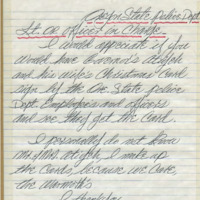 Oregon State Police Dept
Lt. or officer in Charge
I would appreciate if you
would have
and his wife's Christmas Card
sign by the Ore State police
Dept. Employees and officers
and see they got the Card.
I personally do not know
I make up
the Cards because we love
the